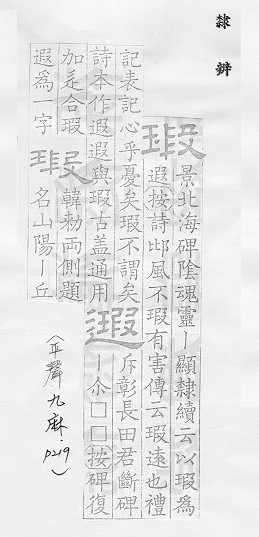 隸辨
瑕景北海碑陰魂靈丨顯隸續云以瑕為
遐按詩邶風不瑕有害傳云瑕遠也禮
記表記心乎憂矣瑕不謂矣遐斥彰長田君斷碑
詩本作遐遐與瑕古盖通用丨尒□□按碑復
加辵合瑕
遐為一字瑕韓勑两側題
名山陽丨丘
(平聲九麻.p219)